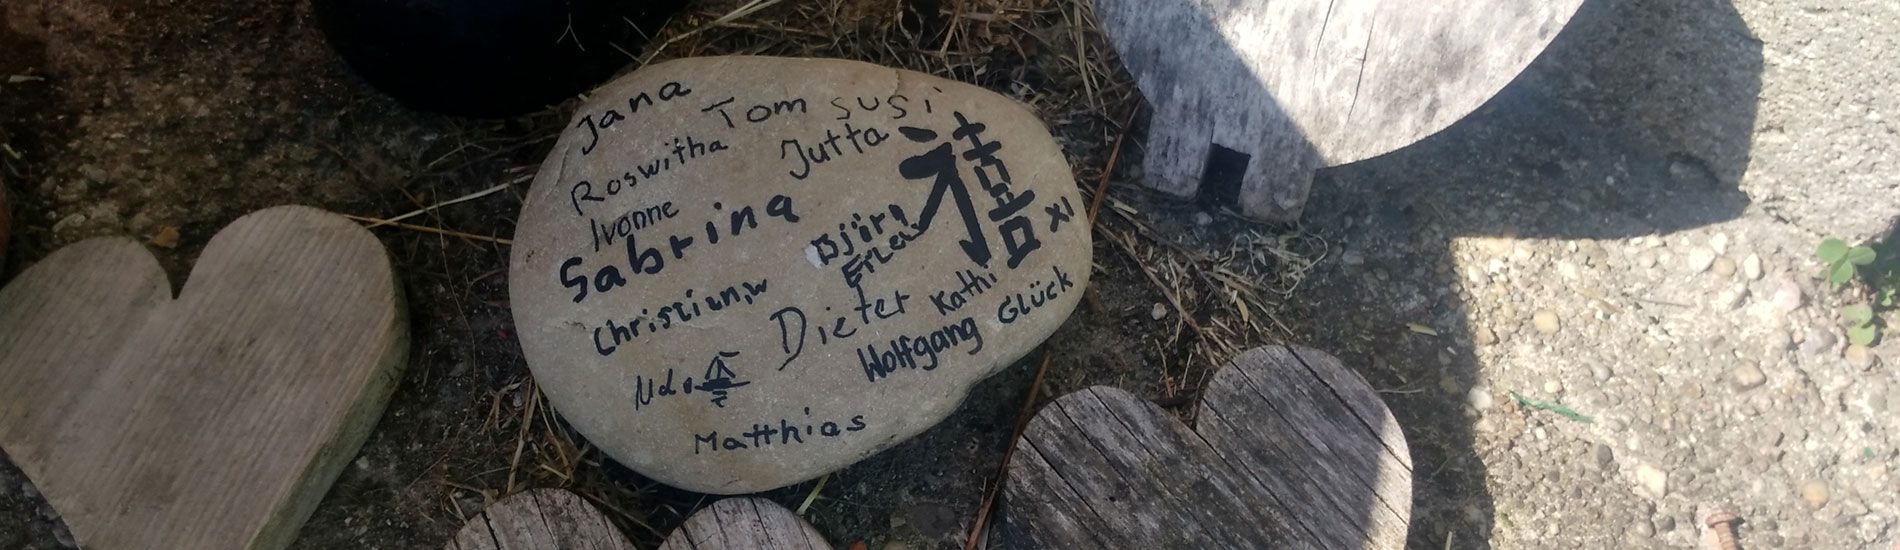 Jana
Tom
susi
Roswitha
Jutta
Ivonne
Sabrina
Björn
禧
XI
Christian,W
Dieter
Kathi
Glück
Wolfgang
Udo
Matthias